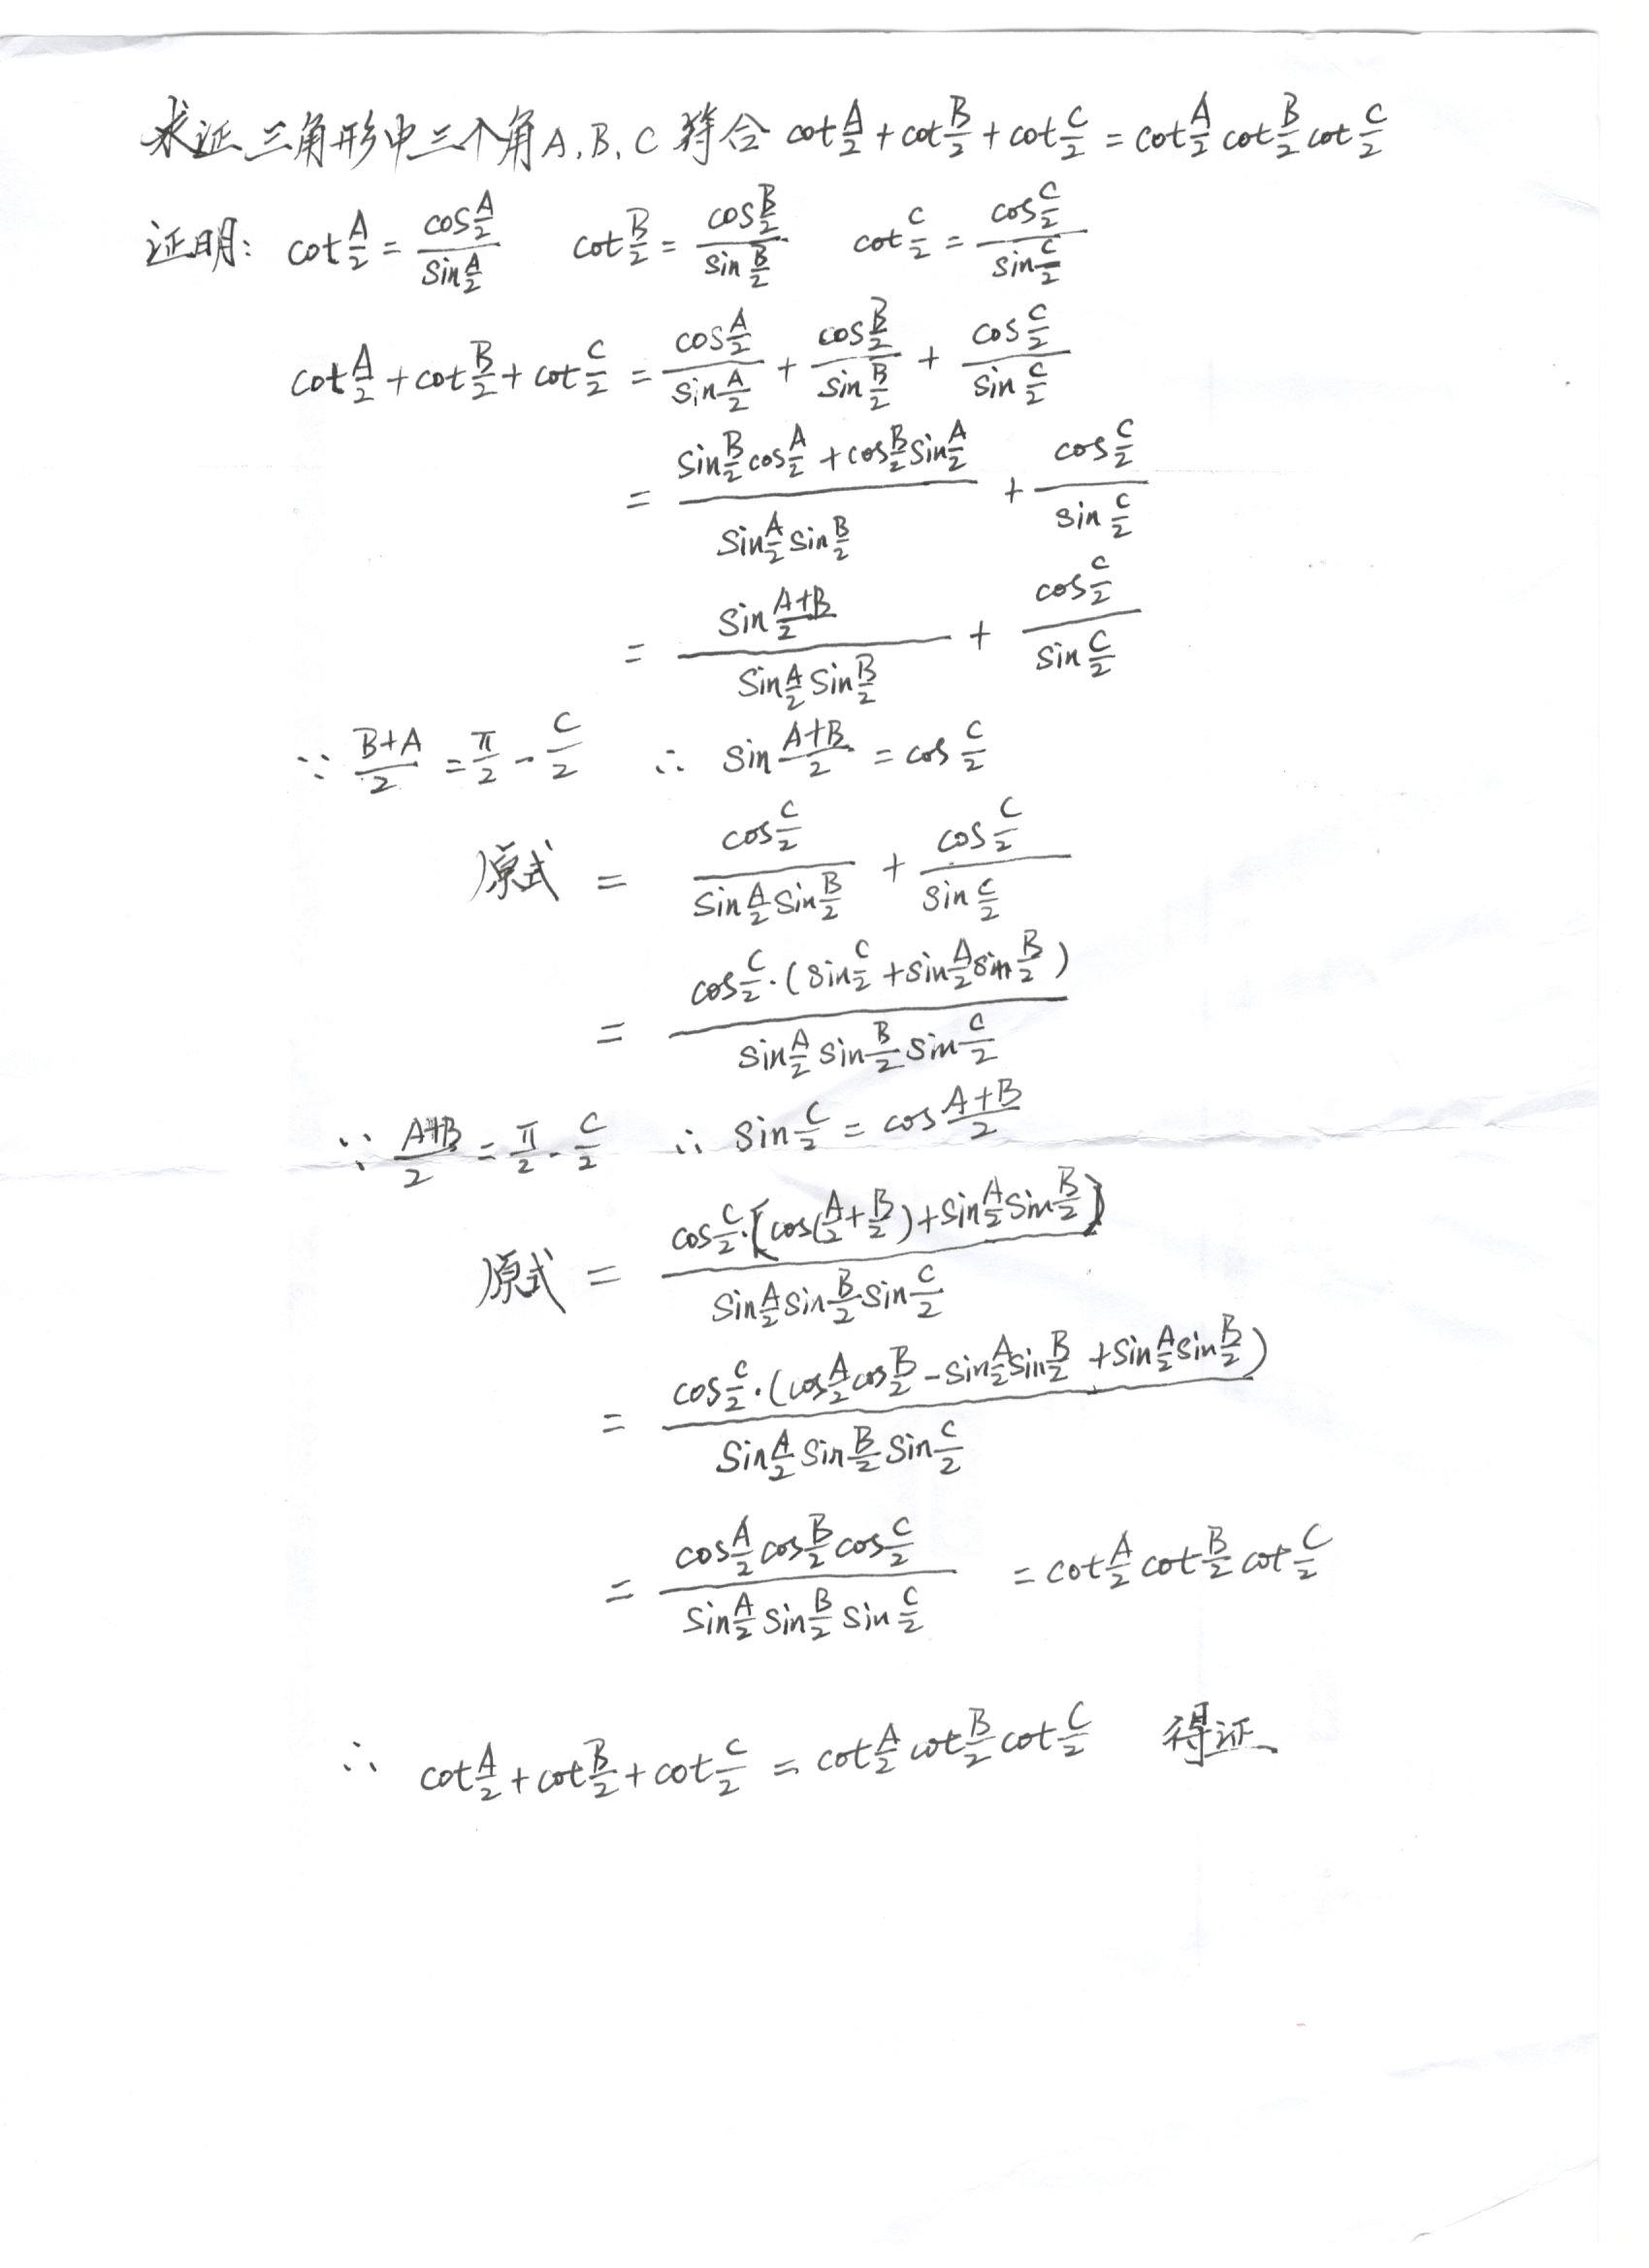 求证三角形中三个角A,B,C符合 cot A/2 + cot B/2 + cot C/2 = cot A/2 cot B/2 cot C/2
证明: cot A/2 = cos A/2 / sin A/2   cot B/2 = cos B/2 / sin B/2   cot C/2 = cos C/2 / sin C/2
cot A/2 + cot B/2 + cot C/2 = cos A/2 / sin A/2 + cos B/2 / sin B/2 + cos C/2 / sin C/2
= (sin B/2 cos A/2 + cos B/2 sin A/2) / (sin A/2 sin B/2) + cos C/2 / sin C/2
= sin (A+B)/2 / (sin A/2 sin B/2) + cos C/2 / sin C/2
∵ (B+A)/2 = π/2 - C/2   ∴ sin (A+B)/2 = cos C/2
原式 = cos C/2 / (sin A/2 sin B/2) + cos C/2 / sin C/2
= cos C/2 · (sin C/2 + sin A/2 sin B/2) / (sin A/2 sin B/2 sin C/2)
∵ (A+B)/2 = π/2 - C/2   ∴ sin C/2 = cos (A+B)/2
原式 = cos C/2 · [cos(A/2 + B/2) + sin A/2 sin B/2] / (sin A/2 sin B/2 sin C/2)
= cos C/2 · (cos A/2 cos B/2 - sin A/2 sin B/2 + sin A/2 sin B/2) / (sin A/2 sin B/2 sin C/2)
= cos A/2 cos B/2 cos C/2 / (sin A/2 sin B/2 sin C/2) = cot A/2 cot B/2 cot C/2
∴ cot A/2 + cot B/2 + cot C/2 = cot A/2 cot B/2 cot C/2 得证